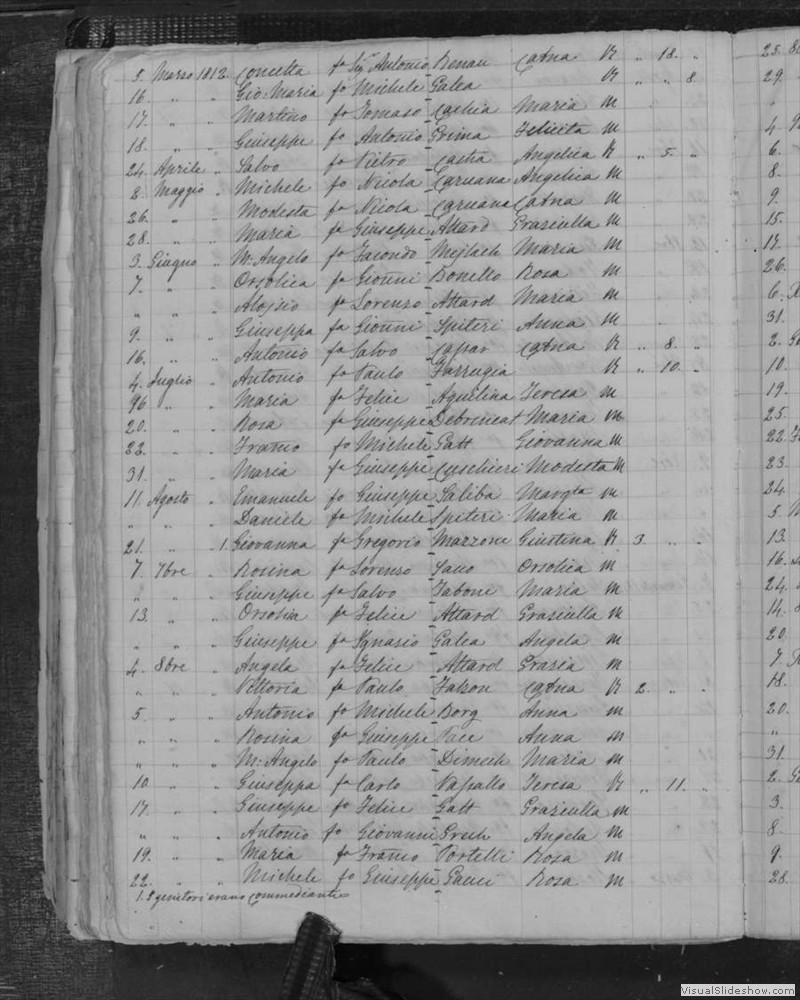 5. Marzo 1812. Concetta fa Sigr Antonio Renau Catna R „ 18. „ 25.
16. „ „ Gio: Maria fo Michele Galea R „ „ 8 29.
17. „ „ Martino fo Tomaso Cachia Maria M
18. „ „ Giuseppe fo Antonio Grima Felicita M 4
24. Aprile „ Salvo fo Pietro Angelica R „ 5. „ 6.
2. Maggio „ Michele fo Nicola Caruana Angelica M 8.
26. „ „ Modesta fa Nicola Caruana Catna M 9.
28. „ „ Maria fa Giuseppe Attard Graziulla M 15.
3. Giugno „ M: Angelo fa Facondo Mejlach Maria M 17.
7. „ „ Orsolica fa Gionni Bonello Rosa M 26.
„ „ „ Aloisio fo Lorenzo Attard Maria M 6.
9. „ „ Giuseppa fa Gionni Spiteri Anna M 31.
16. „ „ Antonio fo Salvo Catna R „ 8. „ 2.
4. Luglio „ Antonio fo Paulo Farrugia R „ 10. „ 10.
96 „ „ Maria fa Felice Aquilina Teresa M 19.
20. „ „ Rosa fa Giuseppe Debrincat Maria M 25.
22. „ „ fo Michele Gatt Giovanna M 22.
31. „ „ Maria fa Giuseppe Cuschieri Modesta M 23.
11. Agosto „ Emanuele fo Giuseppe Saliba Margta M 24.
„ „ „ Daniele fo Michele Spiteri Maria M 5.
21. „ „ 1. Giovanna fa Gregorio Mazzone Giustina R 3. „ „ 13.
7. 7bre „ Rosina fa Lorenzo Orsolica M 16.
„ „ „ Giuseppe fo Salvo Tabone Maria M 24.
13. „ „ Orsolica fa Felice Attard Graziulla M 14.
„ „ „ Giuseppe fo Ignazio Galea Angela M 20.
4. 8bre „ Angela fa Felice Attard Grazia M 7.
„ „ „ Vittoria fa Paulo Falzon Catna R 2. „ „ 18.
5. „ „ Antonio fo Michele Borg Anna M 20.
„ „ „ Rosina fa Giuseppe Pace Anna M „
„ „ „ M: Angelo fo Paulo Dimech Maria M 31.
10. „ „ Giuseppa fa Carlo Teresa R „ 11. „ 2.
17. „ „ Giuseppe fo Felice Gatt Graziulla M 3.
„ „ „ Antonio fo Giovanni Grech Angela M 8.
19. „ „ Maria fa Portelli Rosa M 9.
22. „ „ Michele fo Giuseppe Gauci Rosa M 28.
1. I genitori erano commedianti
VisualSlideshow.com